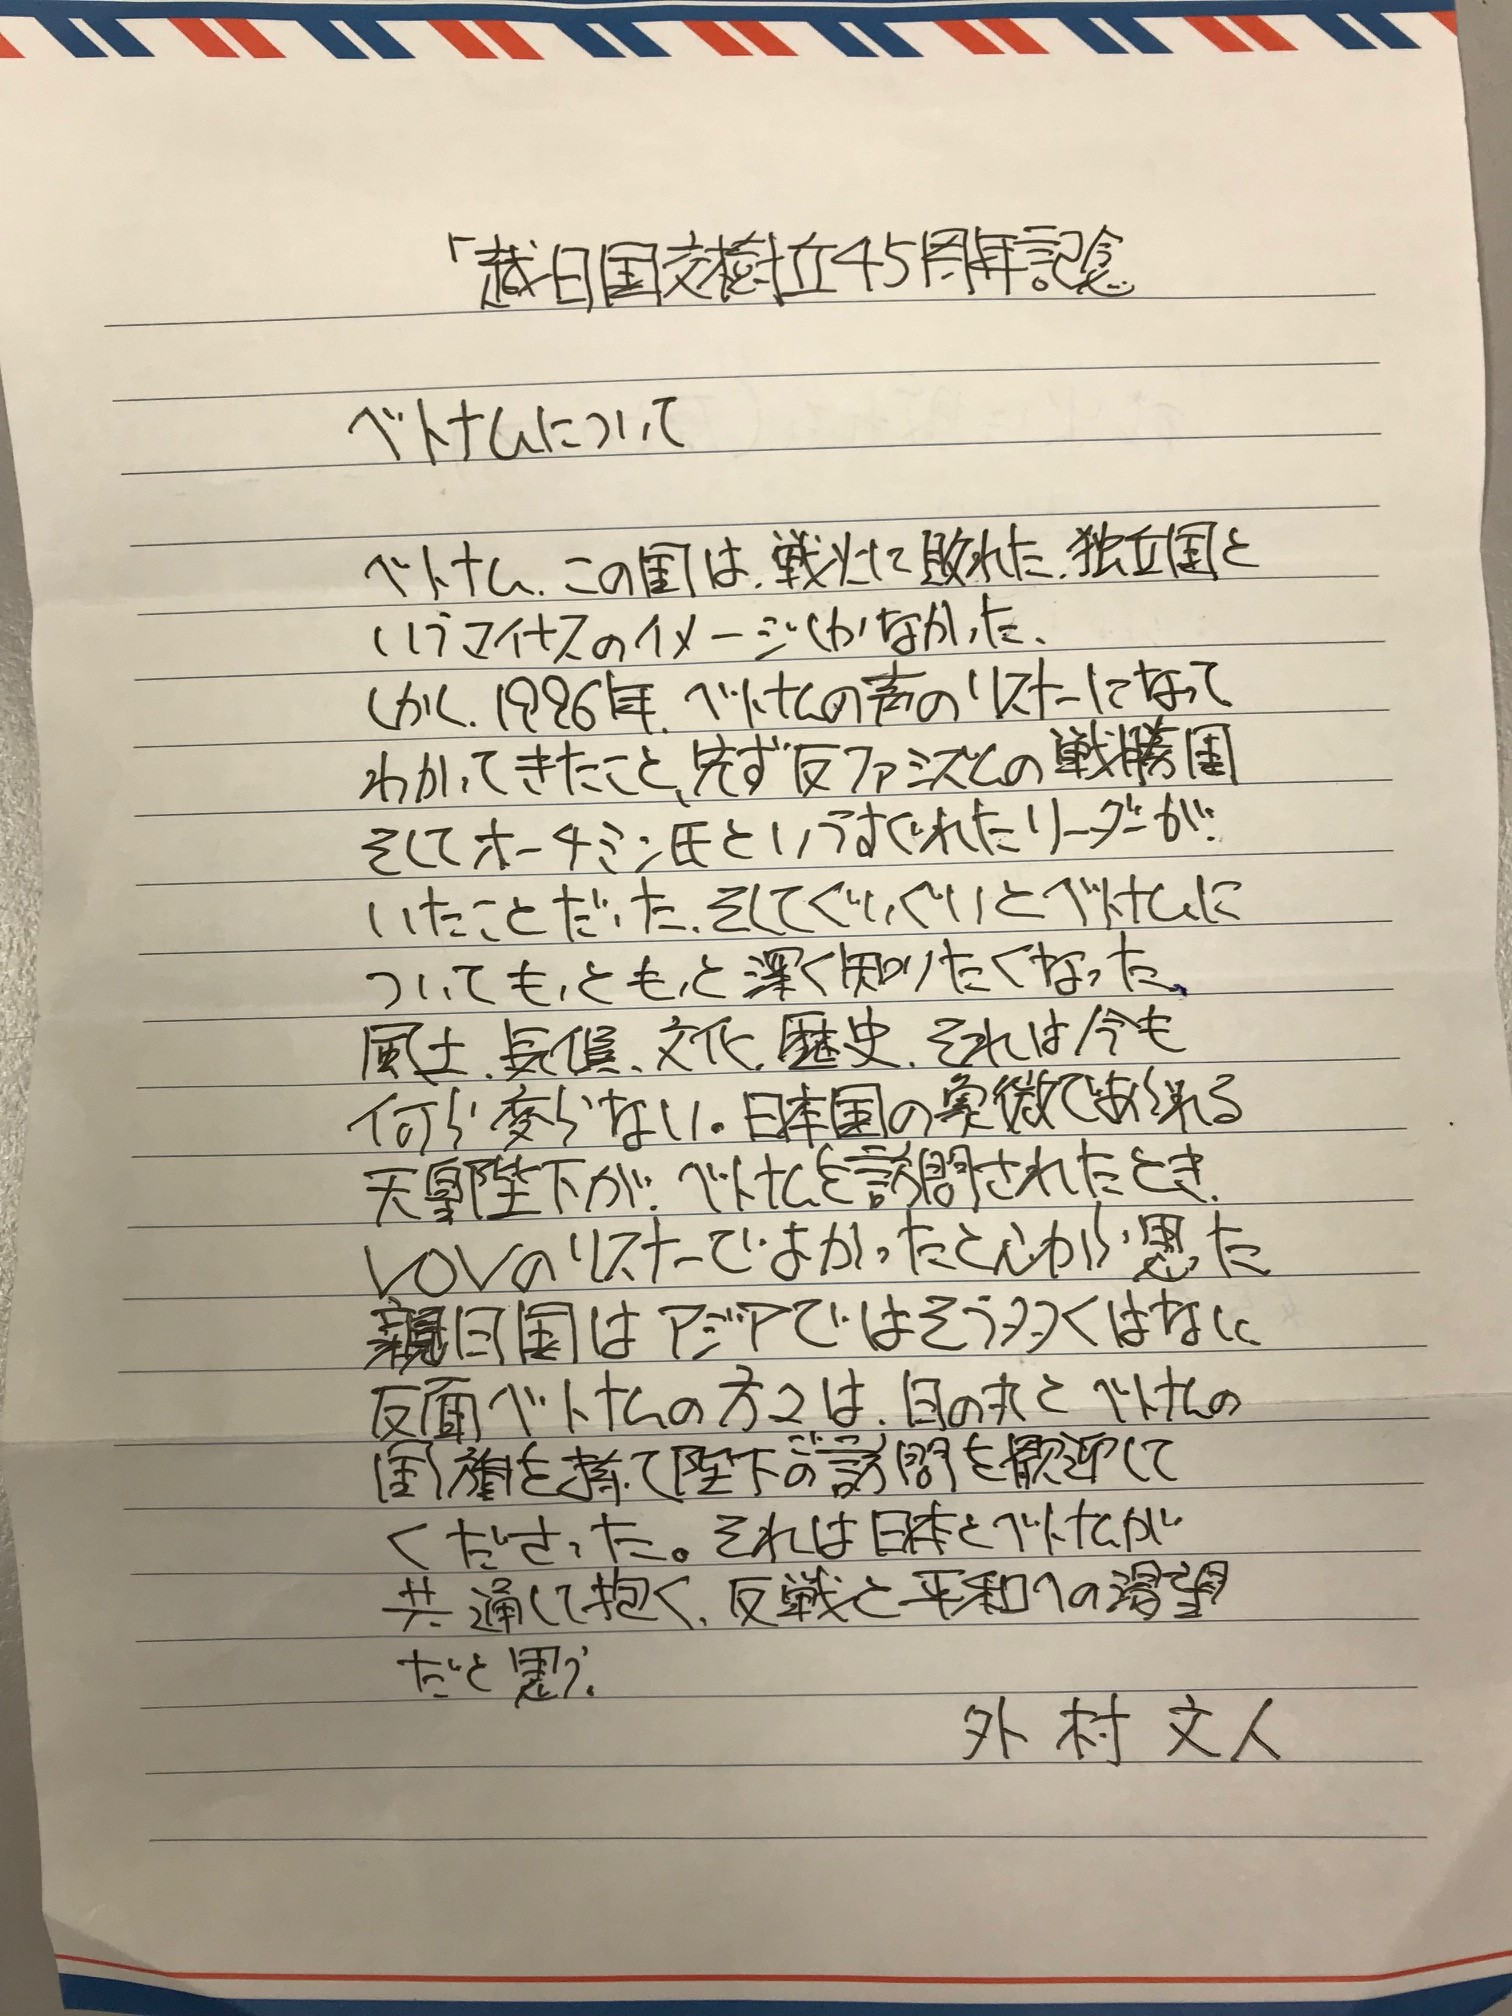 「越日国交樹立45周年記念
ベトナムについて
ベトナム、この国は、戦火に敗れた、独立国と
いうマイナスのイメージしかなかった、
しかし、1996年、ベトナムの声のリスナーになって
わかってきたこと、先ず反ファシズムの戦勝国
そしてホーチミン氏というすぐれたリーダーが
いたことだった、そしてぐいぐいとベトナムに
ついてもっともっと深く知りたくなった、
風土、気候、文化、歴史、それは今も
何ら変らない。日本国の象徴であられる
天皇陛下が、ベトナムを訪問されたとき、
VOVのリスナーでよかったと心から思った
親日国はアジアではそう多くはなに
反面ベトナムの方々は、日の丸とベトナムの
国旗を持って陛下のご訪問を歓迎して
くださった。それは日本とベトナムが
共通して抱く、反戦と平和への渇望
だと思う、
外村文人